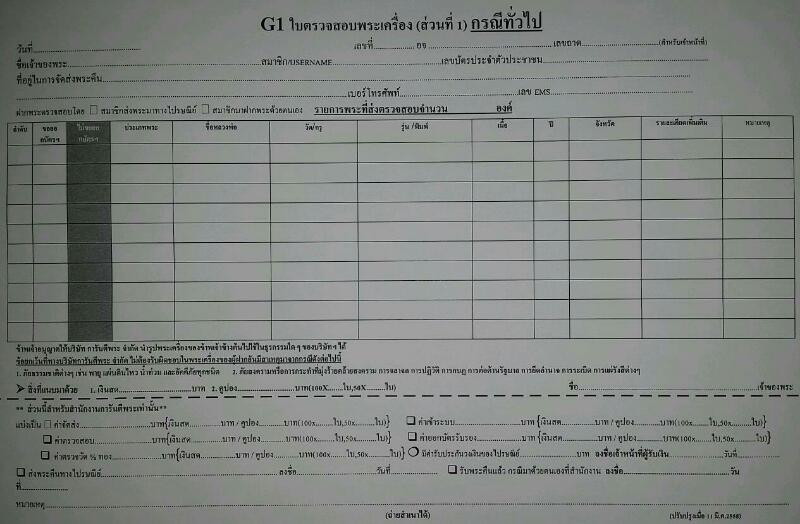 G1 ใบตรวจสอบพระเครื่อง (ส่วนที่ 1) กรณีทั่วไป
วันที่.......................... เลขที่.............. ถึง ........................เลขถาด.....................(สำหรับเจ้าหน้าที่)
ชื่อเจ้าของพระ..........................สมาชิก/USERNAME..........................เลขบัตรประจำตัวประชาชน..........................
ที่อยู่ในการจัดส่งพระคืน..........................
..........................เบอร์โทรศัพท์..........................เลข EMS..........................
ฝากพระตรวจสอบโดย ☐ สมาชิกส่งพระมาทางไปรษณีย์ ☐ สมาชิกมาฝากพระด้วยตนเอง รายการพระที่ส่งตรวจสอบจำนวน องค์
ลำดับ ขอออกบัตรฯ ไม่ขอออกบัตรฯ ประเภทพระ ชื่อหลวงพ่อ วัด/กรุ รุ่น /พิมพ์ เนื้อ ปี จังหวัด รายละเอียดเพิ่มเติม หมายเหตุ
ข้าพเจ้าอนุญาตให้บริษัท การันตีพระ จำกัด นำรูปพระเครื่องของข้าพเจ้าข้างต้นไปใช้ในธุรกรรมใด ๆ ของบริษัทฯ ได้
ข้อยกเว้นที่ทางบริษัทการันตีพระ จำกัด ไม่ต้องรับผิดชอบในพระเครื่องของผู้ฝากอันมีสาเหตุมาจากกรณีดังต่อไปนี้
1. ภัยธรรมชาติต่างๆ เช่น พายุ แผ่นดินไหว น้ำท่วม และอัคคีภัยทุกชนิด 2. ภัยสงครามหรือการกระทำที่มุ่งร้ายคล้ายสงคราม การจลาจล การปฏิวัติ การกบฏ การต่อต้านรัฐบาล การยึดอำนาจ การระเบิด การแผ่รังสีต่างๆ
➤ สิ่งที่แนบมาด้วย 1. เงินสด..........................บาท 2. คูปอง..........................บาท(100X......ใบ,50X.......ใบ) ชื่อ..........................เจ้าของพระ
** ส่วนนี้สำหรับสำนักงานการันตีพระเท่านั้น**
แบ่งเป็น ☐ ค่าจัดส่ง....................บาท{เงินสด............บาท / คูปอง............บาท(100x......ใบ,50x......ใบ)} ☐ ค่าเข้าระบบ....................บาท{เงินสด............บาท / คูปอง............บาท(100x......ใบ,50x......ใบ)}
☐ ค่าตรวจสอบ....................บาท{เงินสด............บาท / คูปอง............บาท(100x......ใบ,50x......ใบ)} ☐ ค่าออกบัตรรับรอง....................บาท{เงินสด............บาท / คูปอง............บาท(100x......ใบ,50x......ใบ)}
☐ ค่าตรวจวัด % ทอง....................บาท{เงินสด............บาท / คูปอง............บาท(100x......ใบ,50x......ใบ)} ○ มีค่ารับประกันวงเงินของไปรษณีย์....................บาท ลงชื่อเจ้าหน้าที่ผู้รับเงิน....................วันที่..............
☐ ส่งพระคืนทางไปรษณีย์.................... ลงชื่อ....................วันที่ .................... ☐ รับพระคืนแล้ว กรณีมาด้วยตนเองที่สำนักงาน ลงชื่อ....................วัน
ที่....................
หมายเหตุ..........................
(ถ่ายสำเนาได้) (ปรับปรุงเมื่อ 11 มี.ค.2558)